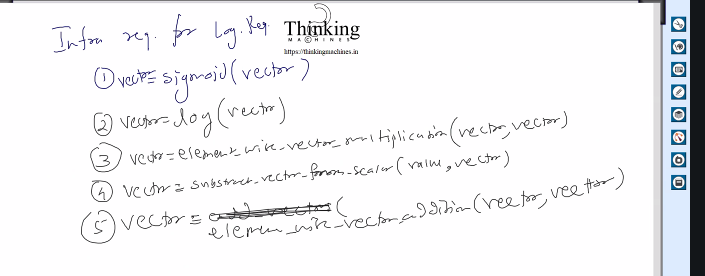 Infra req. for Log. Reg.
Thinking
MACHINES
https://thinkingmachines.in
① vector = sigmoid(vector)
② vector = log(vector)
③ vector = element_wise_vector_multiplication(vector, vector)
④ vector = substract_vector_from_scalar(value, vector)
⑤ vector = (
elemen_wise_vector_addition(vector, vector)